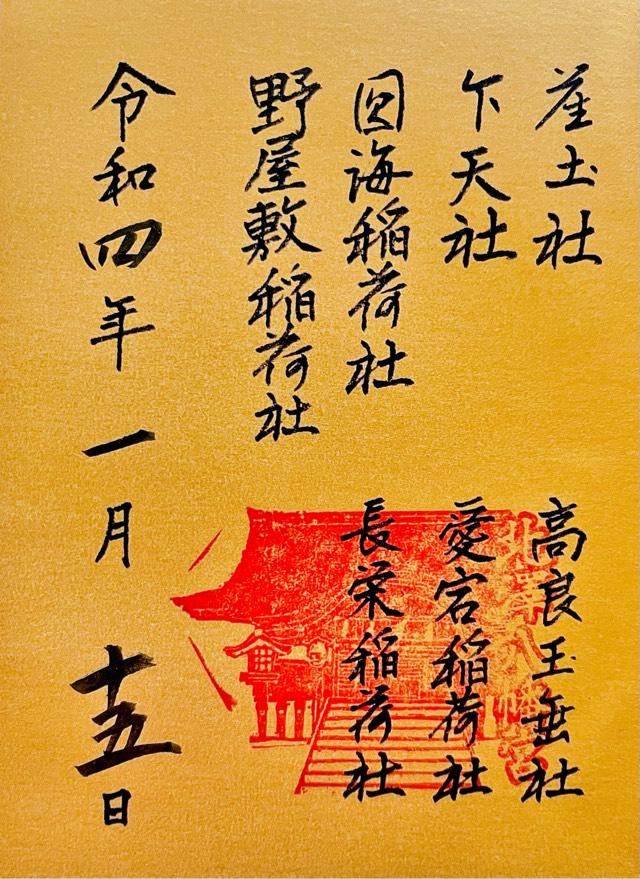 産土社
卞天社
圓海稲荷社
野屋敷稲荷社
高良玉垂社
愛宕稲荷社
長栄稲荷社
令和四年一月十五日
北澤八幡宮